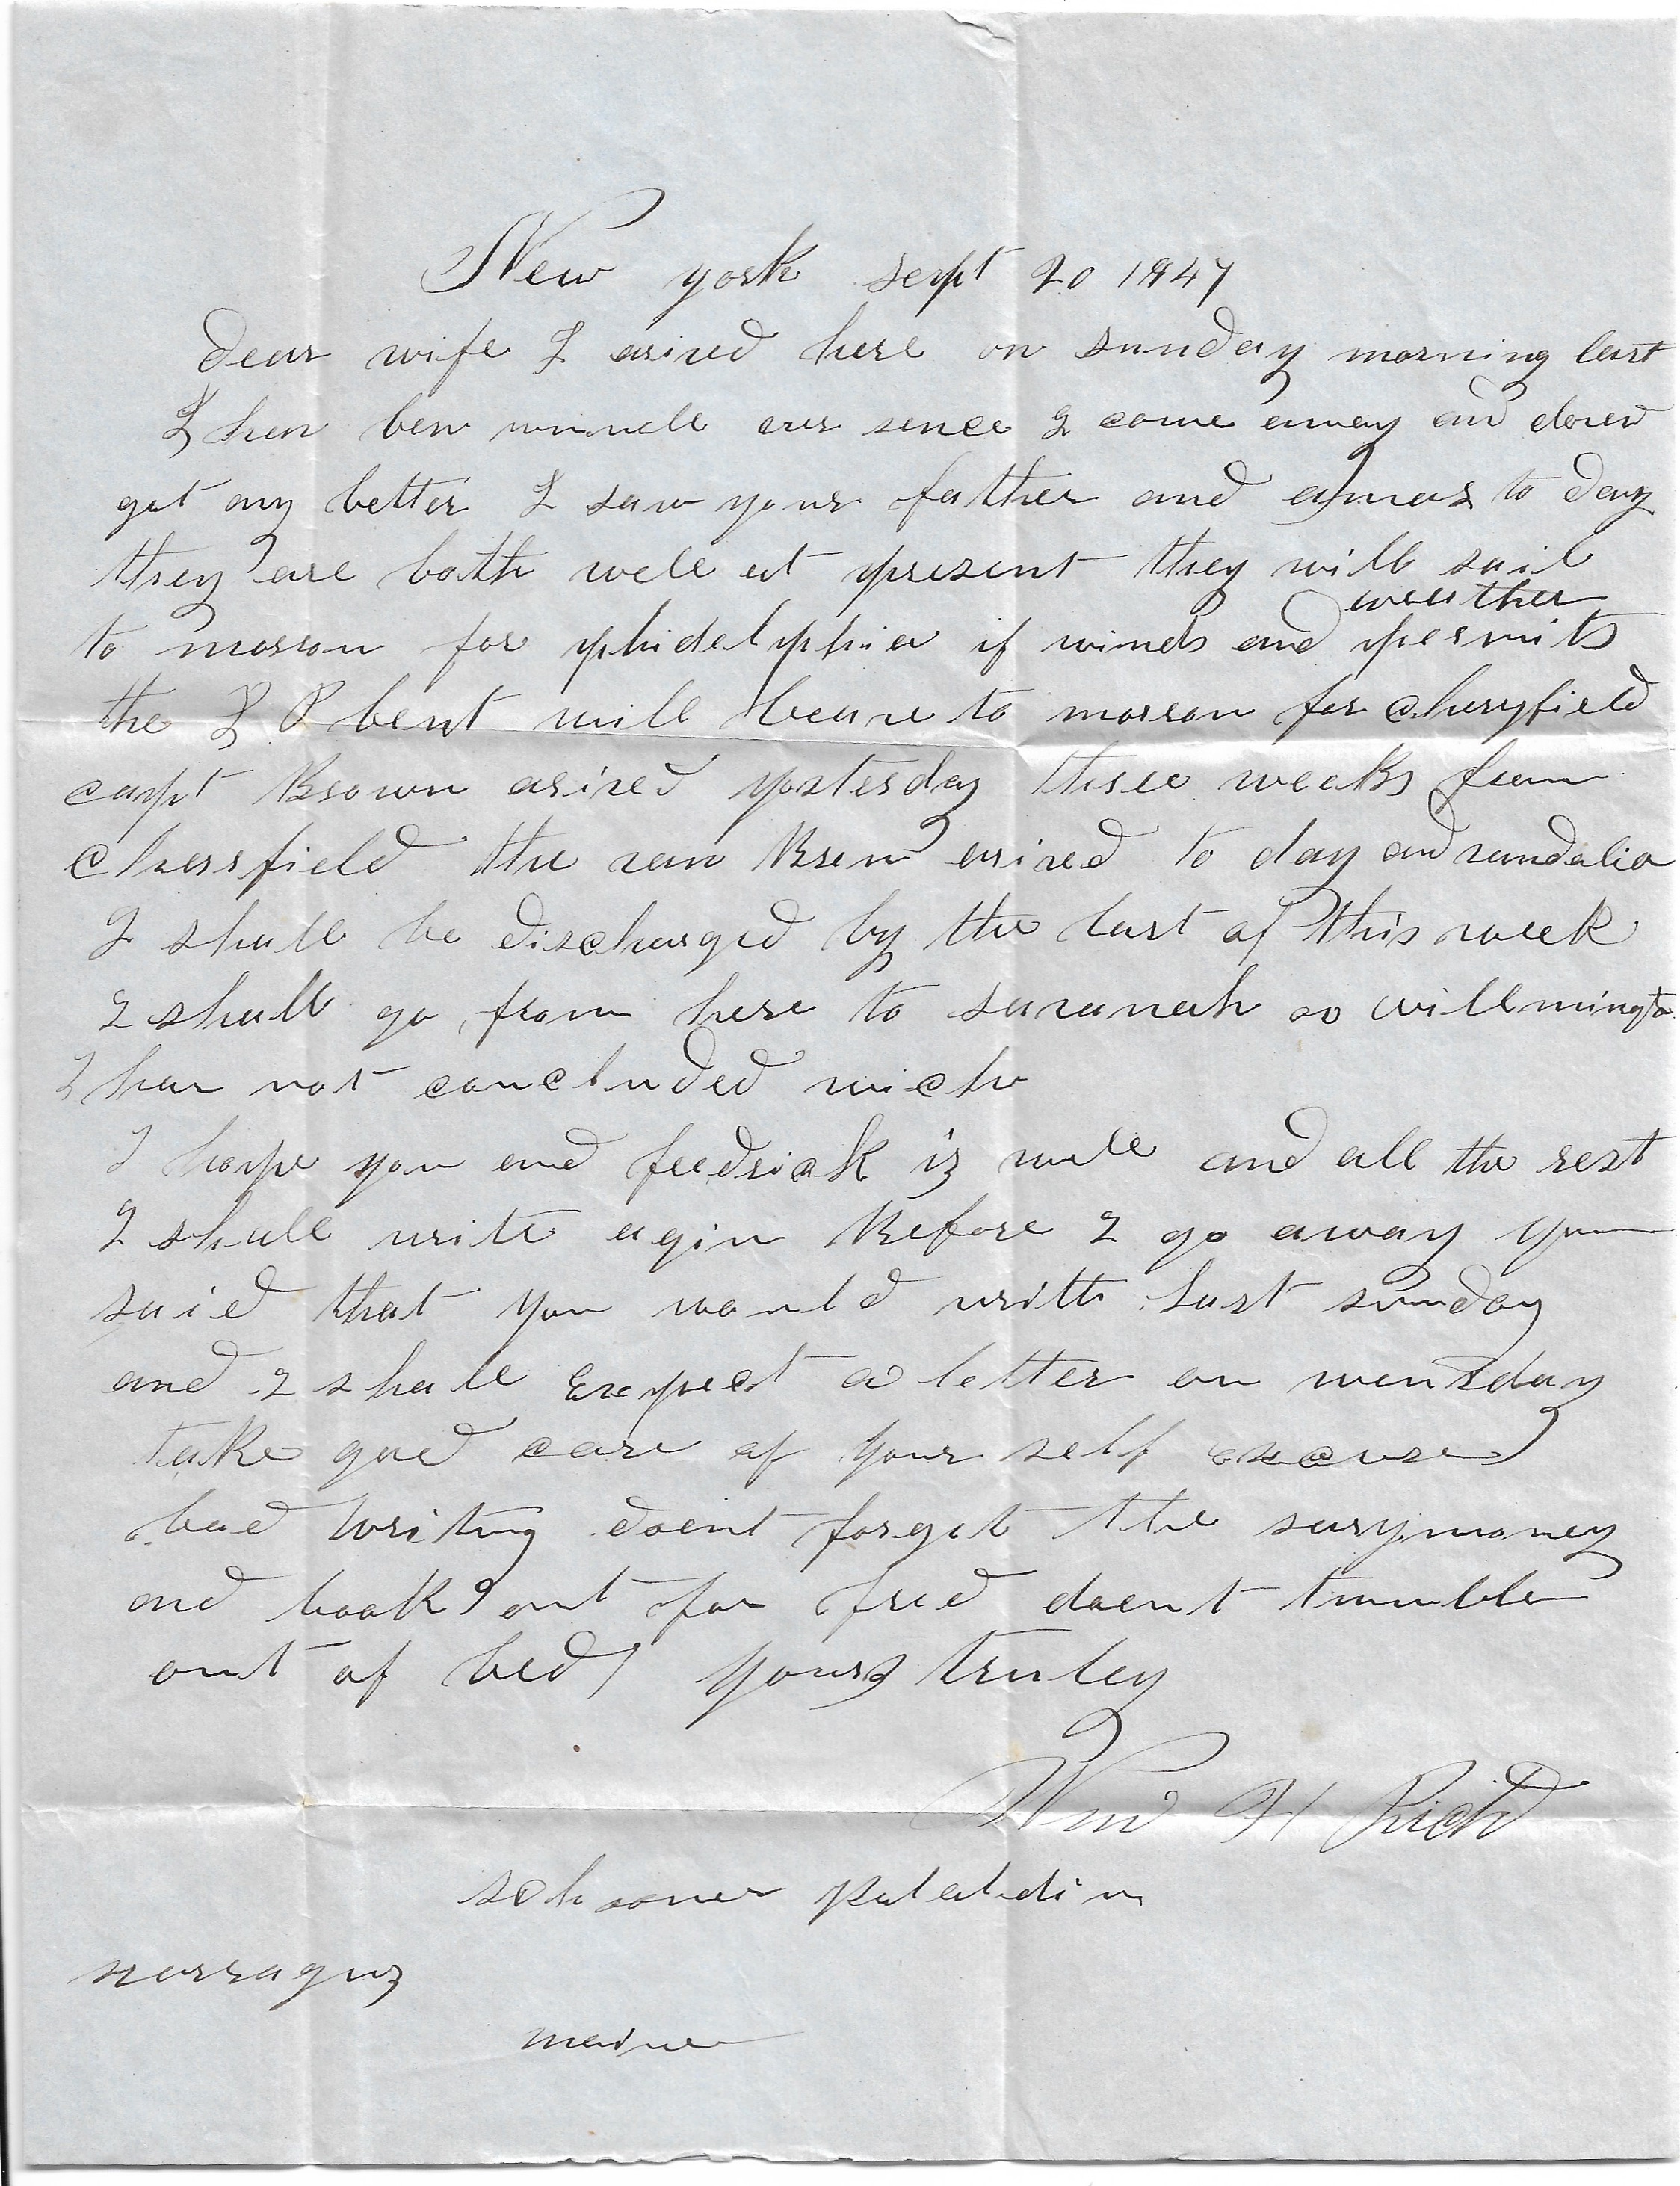 New york sept 20 1847
dear wife I arived here on sunday morning last
I hav ben unwell ever sence I come away and dont
get any better I saw your father and to day
they are both well at present they will sail
weather
to morrow for phidelphia if winds and permits
the bent will leave to morrow for cheryfield
capt Brown arived yesterday three weeks from
cherrfield the van Bren arived to day and vandalia
I shall be discharged by the last of this week
I shall go from here to savanah or willmington
I hav not concluded wich
I hope you and feedrick is well and all the rest
I shall write agin Before I go away you
said that you would write last sunday
and I shall expect a letter on wensday
take good care of your self excuse
bad writing doent forget the money
and look out for fred doent tumble
out of bed yours truley
Wm H Rich
schooner paladin
narragus
maine